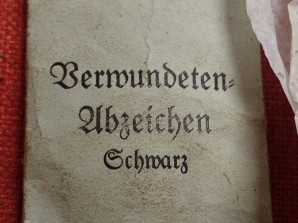 Verwundeten=
Abzeichen
Schwarz